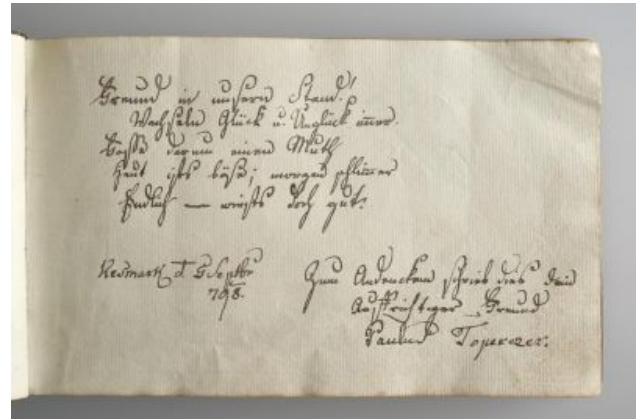 Freund in unserm Stand!
Wechseln Glück u. Unglück immer.
Fasse darum einen Muth
Heut ists böse; morgen schlimer
Endlich — wirds doch gut:
Kesmark d. 6 Septbr
798.
Zum Andencken schrieb dies dein
Auffrichtiger Freund
Paulus Toperczer.